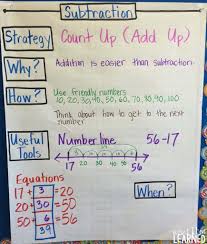 Subtraction
Strategy Count Up (Add Up)
Why? Addition is easier than subtraction
How? Use friendly numbers
10, 20, 30, 40, 50, 60, 70, 80, 90, 100
Think about how to get to the next number
Useful Tools
Number line 56-17
17 20 30 40 50 56
Equations
17 + 3 = 20
20 + 30 = 50
50 + 6 = 56
39
When?
LEARNED